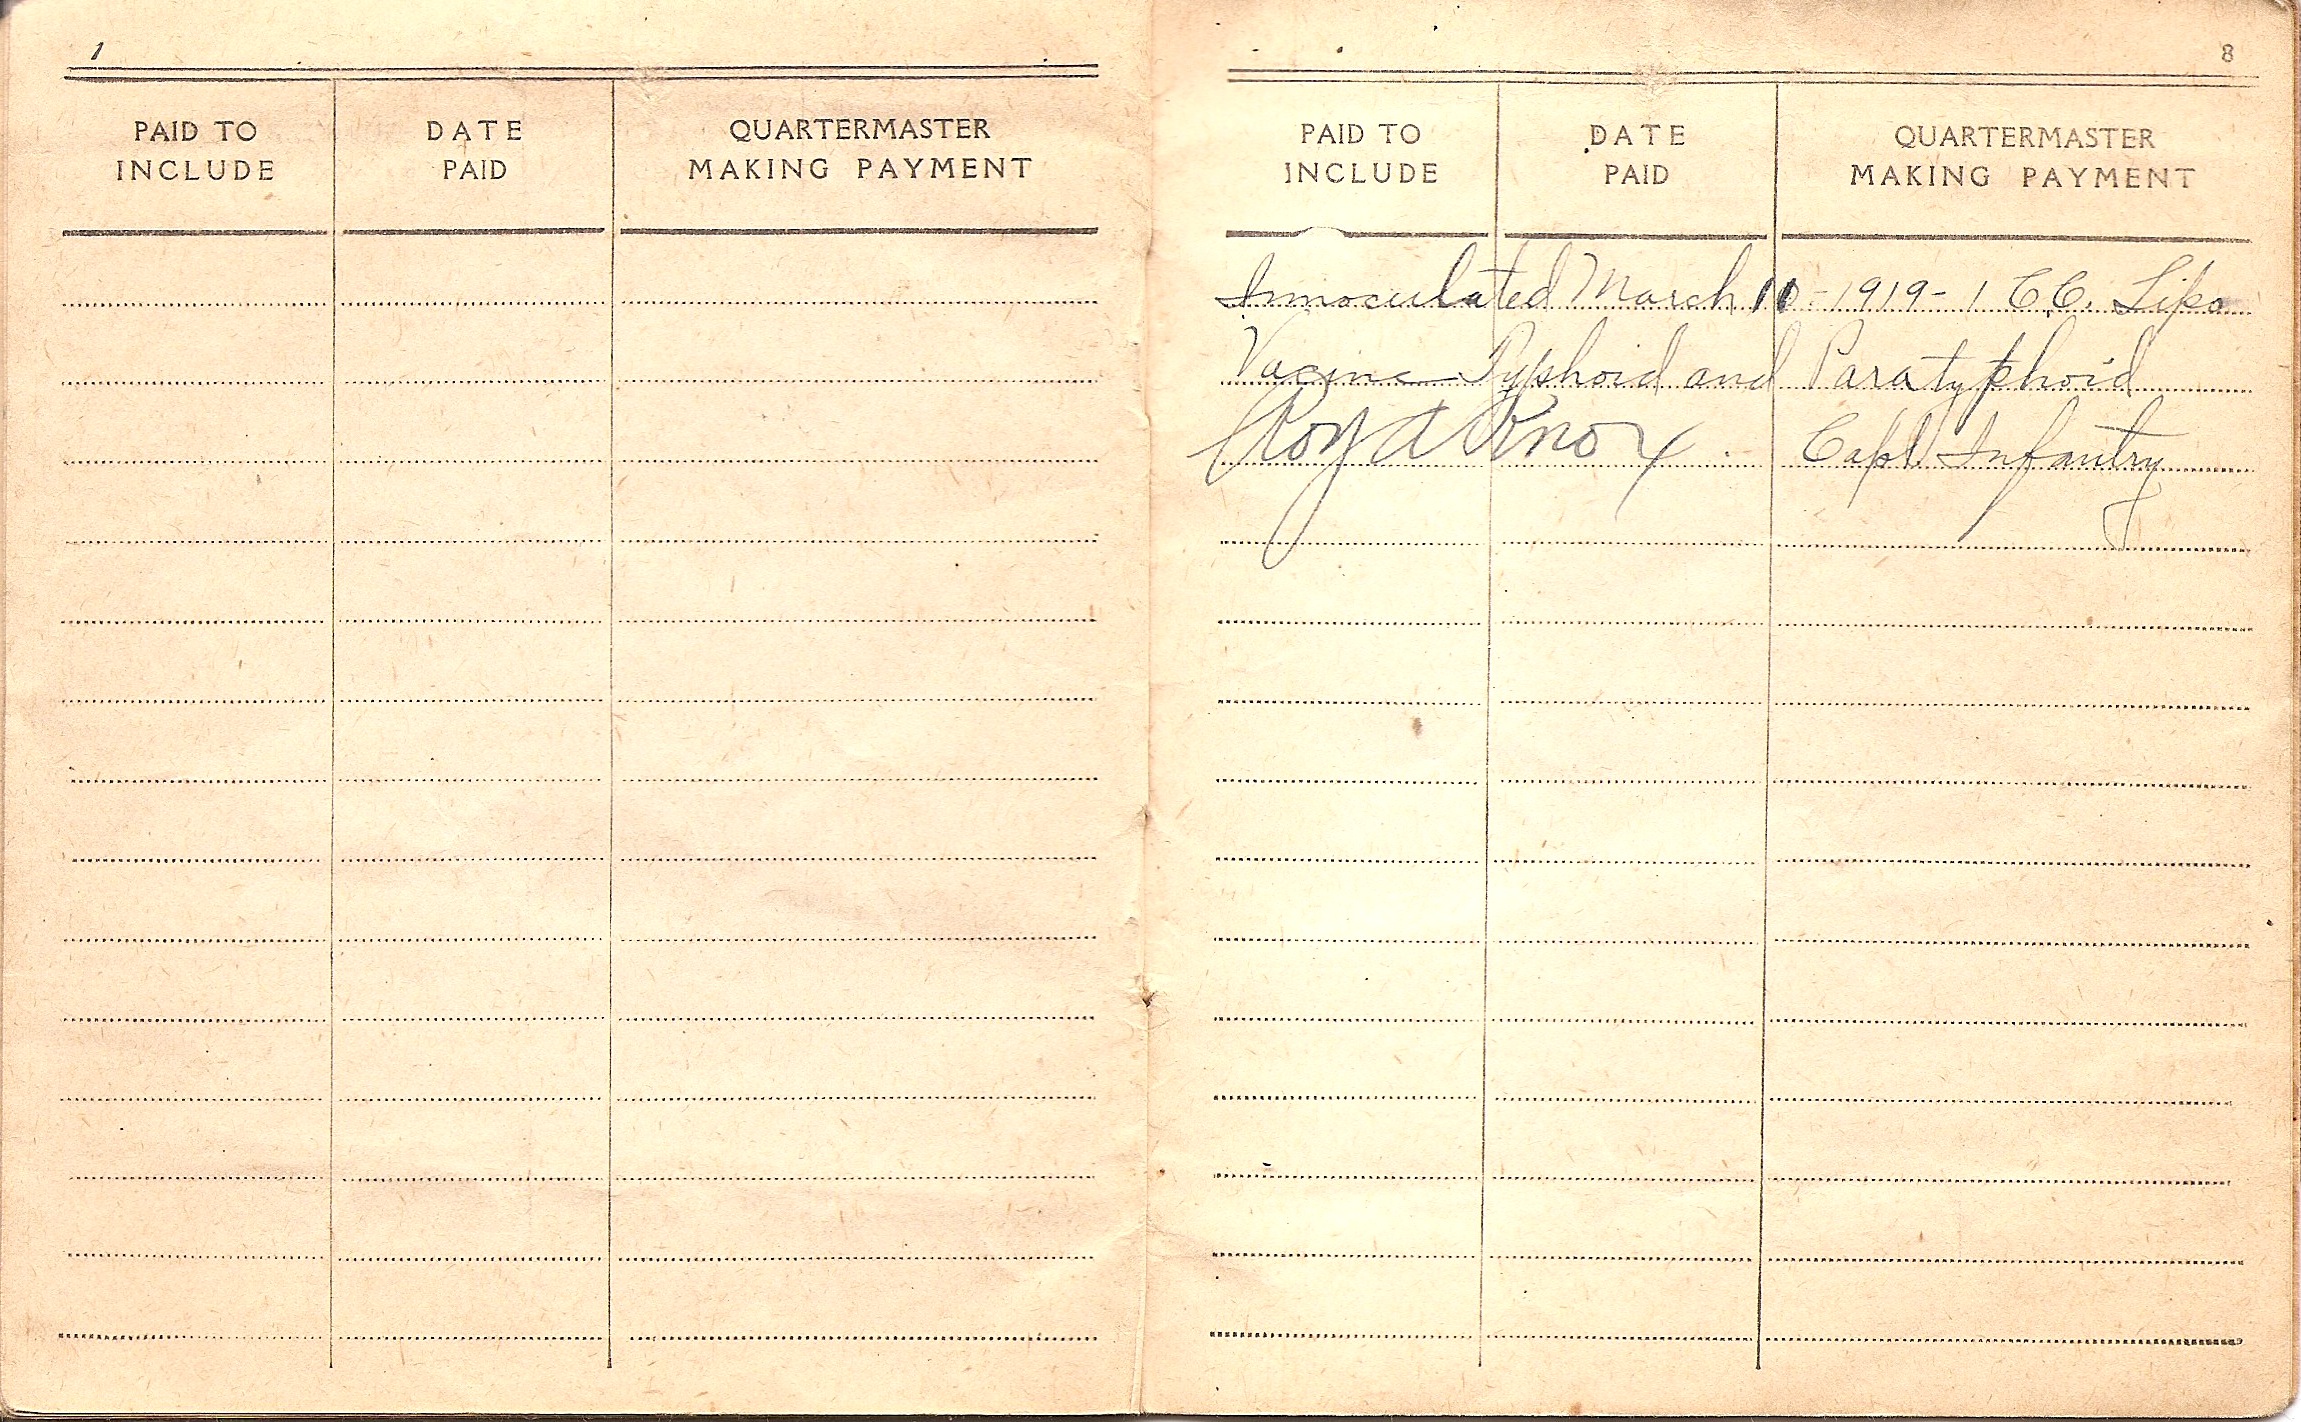 1
PAID TO
INCLUDE
DATE
PAID
QUARTERMASTER
MAKING PAYMENT
8
PAID TO
INCLUDE
DATE
PAID
QUARTERMASTER
MAKING PAYMENT
Innoculated March 10-1919-1 C.C. Lipo
Vacine Typhoid and Paratyphoid
Roy A Knox. Capt Infantry